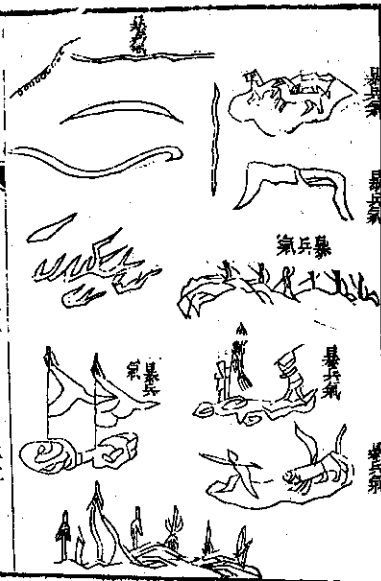 暴兵氣
暴兵氣
暴兵氣
暴兵氣
暴兵氣
暴兵氣
暴兵
氣